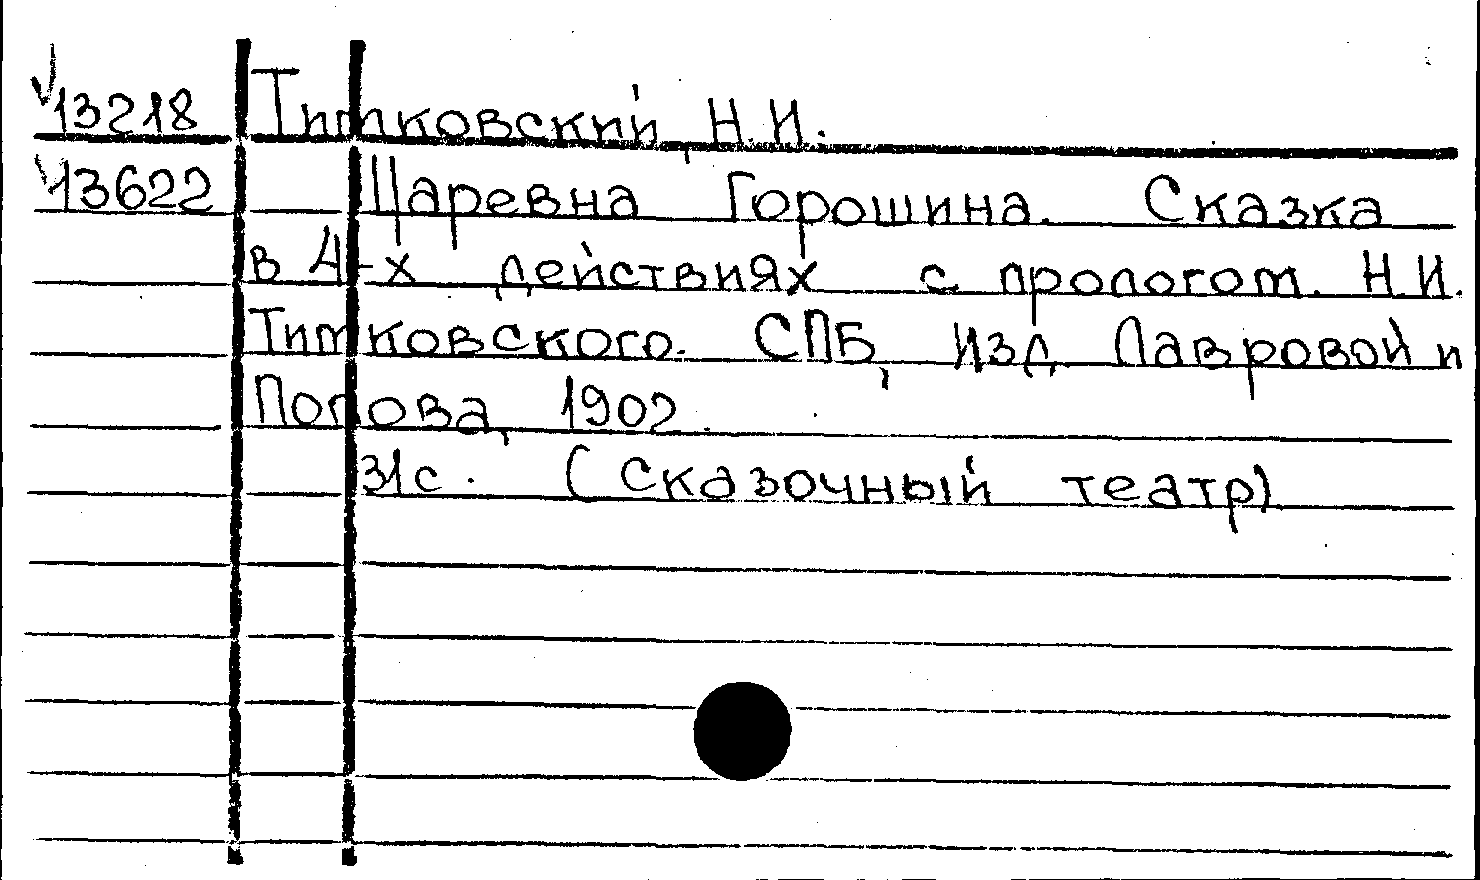 13218 Тимковский, Н.И.
13622 Царевна Горошина. Сказка
в 4-х действиях с прологом. Н.И.
Тимковского. СПБ, Изд. Лавровой и
Попова, 1902.
31с. (Сказочный театр)